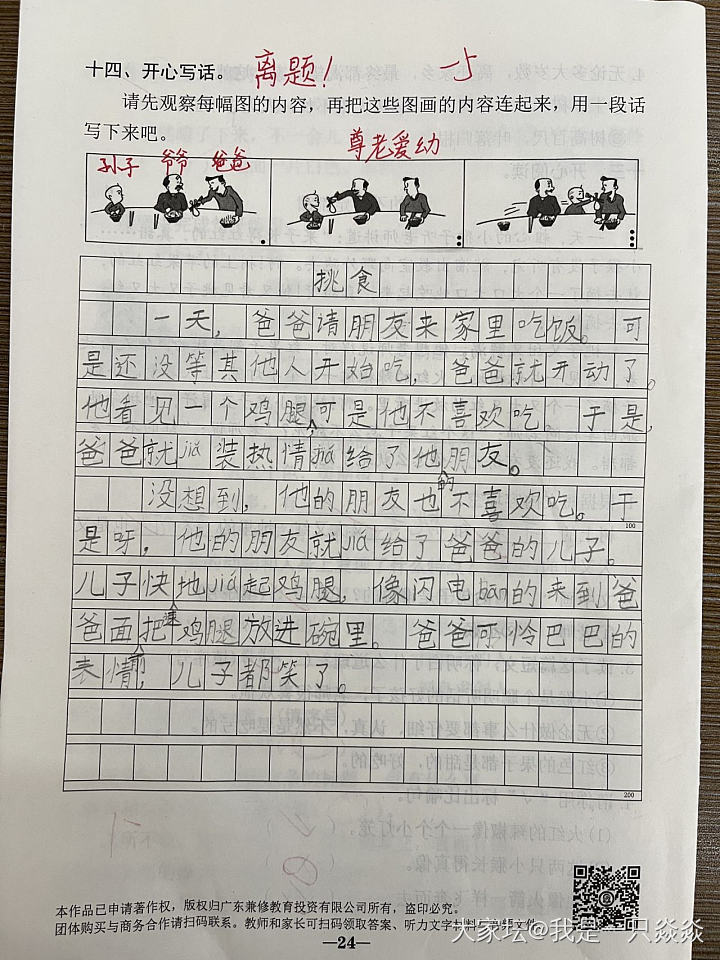 十四、开心写话。 离题！ -5
请先观察每幅图的内容，再把这些图画的内容连起来，用一段话
写下来吧。
尊老爱幼
孙子 爷爷 爸爸
挑食
一天，爸爸请朋友来家里吃饭。可
是还没等其他人开始吃，爸爸就开动了。
他看见一个鸡腿，可是他不喜欢吃。于是，
爸爸就jiǎ装热情jiá给了他的朋友。
没想到，他的朋友也不喜欢吃。于
100
是呀，他的朋友就jiá给了爸爸的儿子。
儿子快速地jiá起鸡腿，像闪电bān的来到爸
爸面前把鸡腿放进碗里。爸爸可怜巴巴的
表情，儿子都笑了。
200
本作品已申请著作权，版权归广东兼修教育投资有限公司所有，盗印必究。
团体购买与商务合作请扫码联系。教师和家长可扫码领取答案、听力文字材料
—24—
大家坛@我是一只焱焱